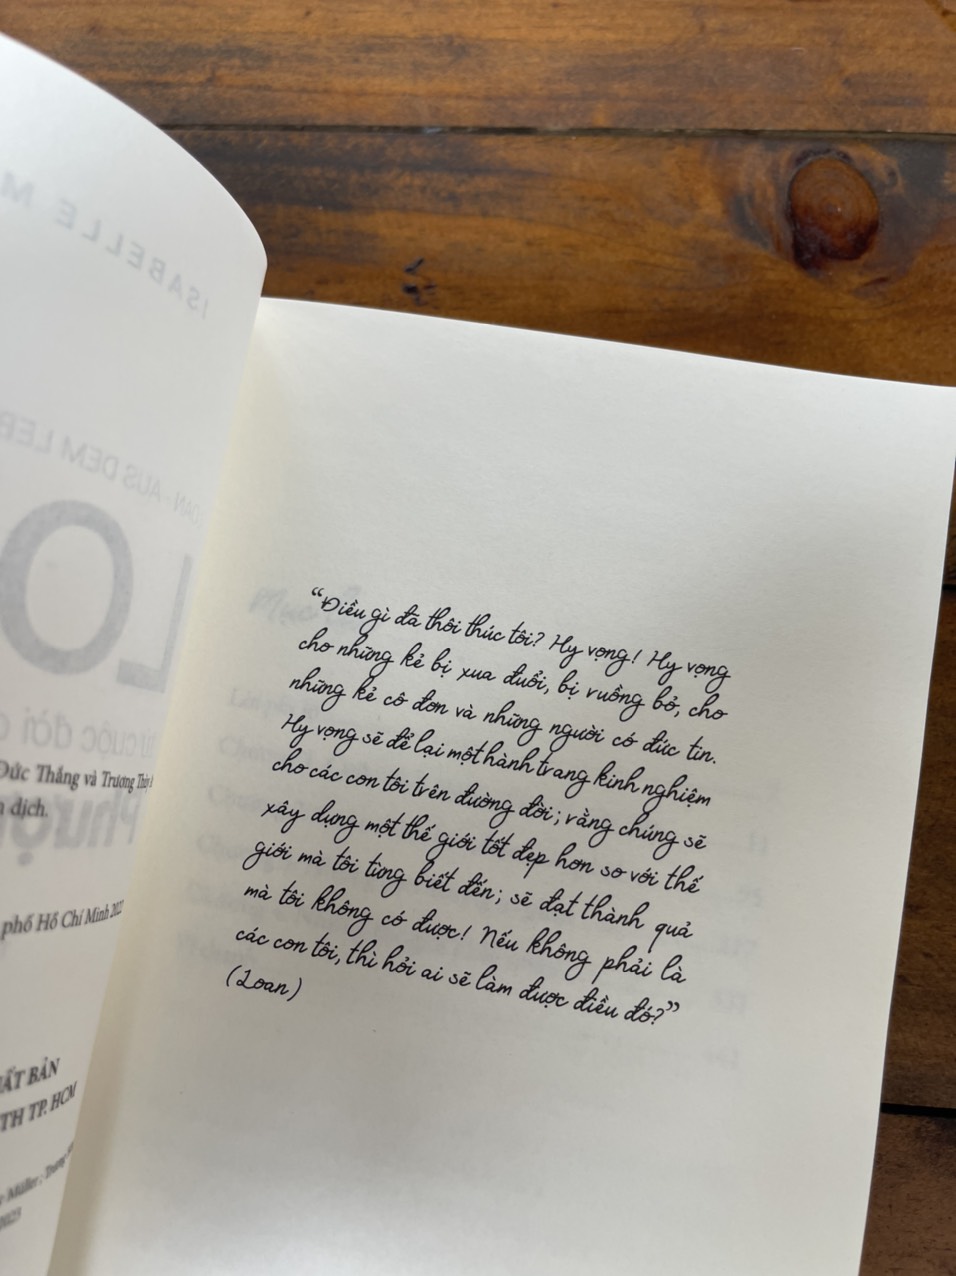 ISABELLE M
AUS DEM LEB
LO
từ cuộc đời
Đức Thắng và Trương Thúy
dịch.
Phượn
phố Hồ Chí Minh 2022
BẢN
TH TP. HCM
Müller ; Trung
2023
“Điều gì đã thôi thúc tôi? Hy vọng! Hy vọng
cho những kẻ bị xua đuổi, bị ruồng bỏ, cho
những kẻ cô đơn và những người có đức tin.
Hy vọng sẽ để lại một hành trang kinh nghiệm
cho các con tôi trên đường đời; rằng chúng sẽ
xây dựng một thế giới tốt đẹp hơn so với thế
giới mà tôi từng biết đến; sẽ đạt thành quả
mà tôi không có được! Nếu không phải là
các con tôi, thì hỏi ai sẽ làm được điều đó?”
(Loan)